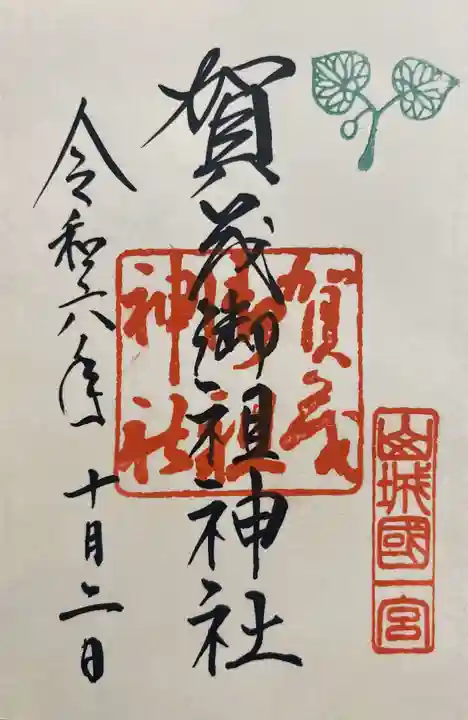 山城國一宮
賀茂御祖神社
賀茂
御祖
神社
令和六年 十月二日